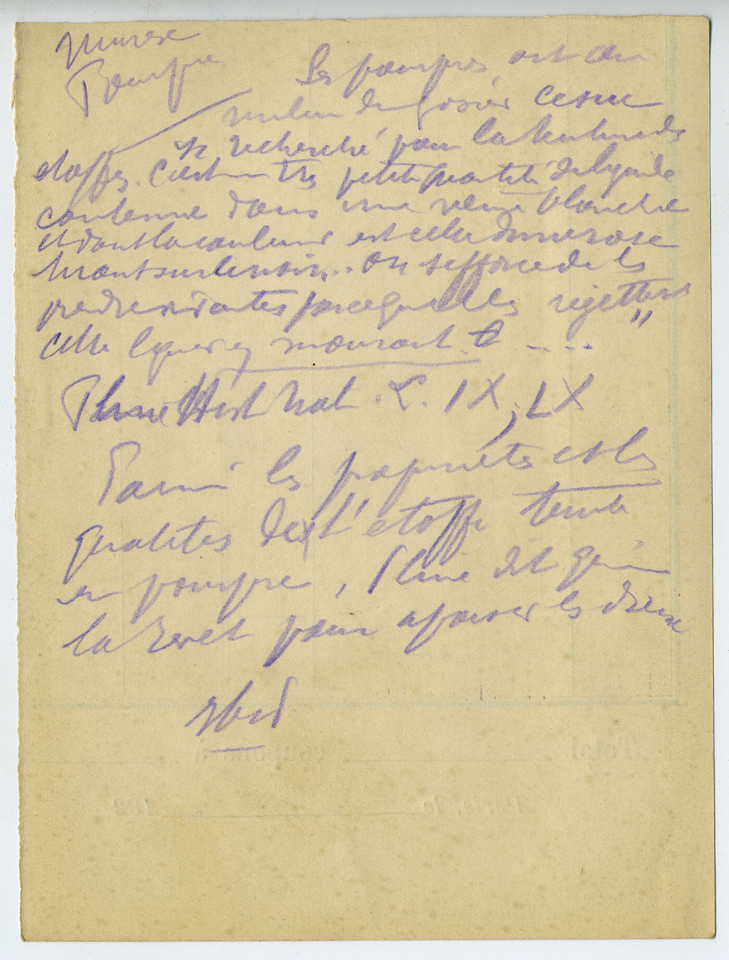 Murex
Pourpres
Les pourpres ont au
milieu du gosier ce suc
si recherché pour la teinture des
étoffes. C'est une très petite quantité de liquide
contenue dans une veine blanche
et dont la couleur est celle d'une rose
tirant sur le noir... On s'efforce de les
prendre vivantes parce qu'elles rejettent
cette liqueur en mourant ---- "
Pline Hist Nat. L. IX, LX
Parmi les propriétés et les
qualités de l'étoffe teinte
en pourpre, Pline dit qu'on
la revêt pour apaiser les dieux
Ibid
Total
coupons à
Paris, le
192